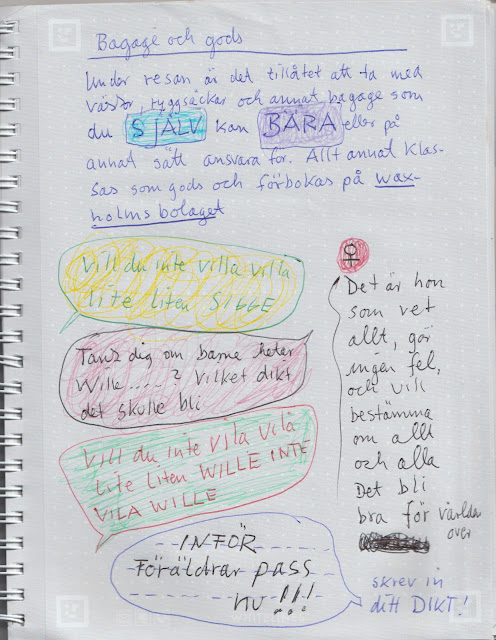 Bagage och gods
Under resan är det tillåtet att ta med
väskor, ryggsäckar och annat bagage som
du SJÄLV kan BÄRA eller på
annat sätt ansvara för. Allt annat klas-
sas som gods och förbokas på wax-
holmsbolaget
Vill du inte villa villa
lite liten SIGGE
Tänk dig om barne heter
Wille.....? vilket dikt
det skulle bli
Vill du inte vila vila
lite liten WILLE INTE
VILA WILLE
INFÖR
Föräldrar pass
nu!!!
♀
Det är hon
som vet
allt, gör
ingen fel,
och vill
bestämma
om allt
och alla
Det bli
bra för världen
over
skrev in
ditt DIKT!